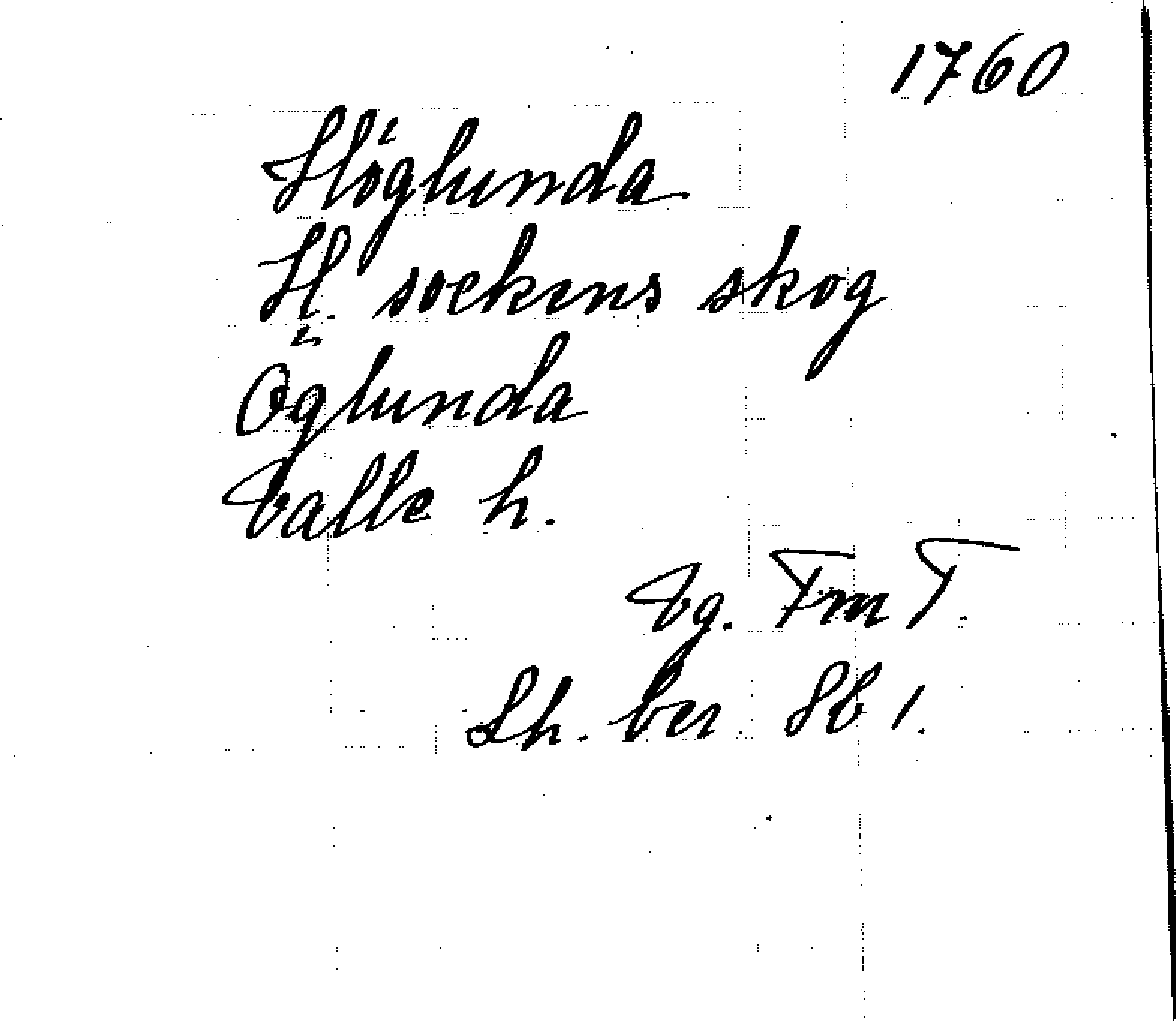 1760
Höglunda
H. sockens skog
Öglunda
Valle h.
Vg. FmT.
Lh. ber. 1.